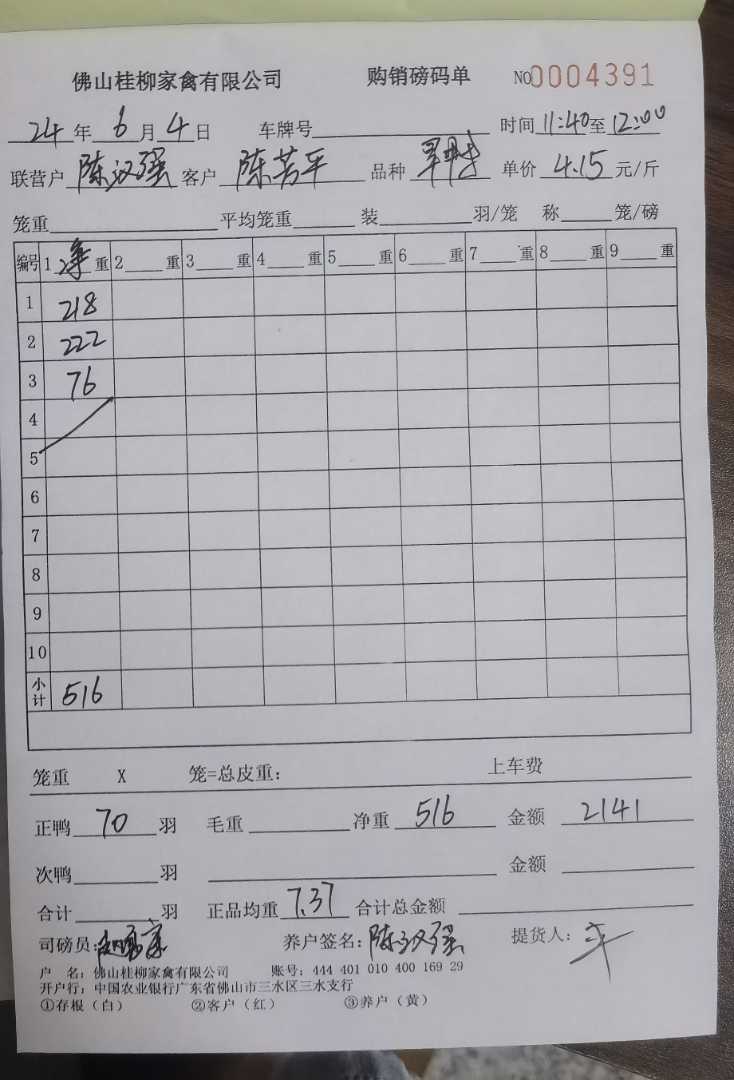 佛山桂柳家禽有限公司 购销磅码单 NO0004391
24年6月4日 车牌号 时间11:40至12:00
联营户陈汉强 客户陈芳平 品种 单价4.15元/斤
笼重 平均笼重 装 羽/笼 称 笼/磅
编号 1净重 2 重 3 重 4 重 5 重 6 重 7 重 8 重 9 重
1 218
2 222
3 76
4
5
6
7
8
9
10
小计 516
笼重 X 笼=总皮重: 上车费
正鸭70羽 毛重 净重516 金额2141
次鸭 羽 金额
合计 羽 正品均重7.37 合计总金额
司磅员: 养户签名:陈汉强 提货人:
户 名: 佛山桂柳家禽有限公司 账号: 444 401 010 400 169 29
开户行: 中国农业银行广东省佛山市三水区三水支行
①存根(白) ②客户(红) ③养户(黄)